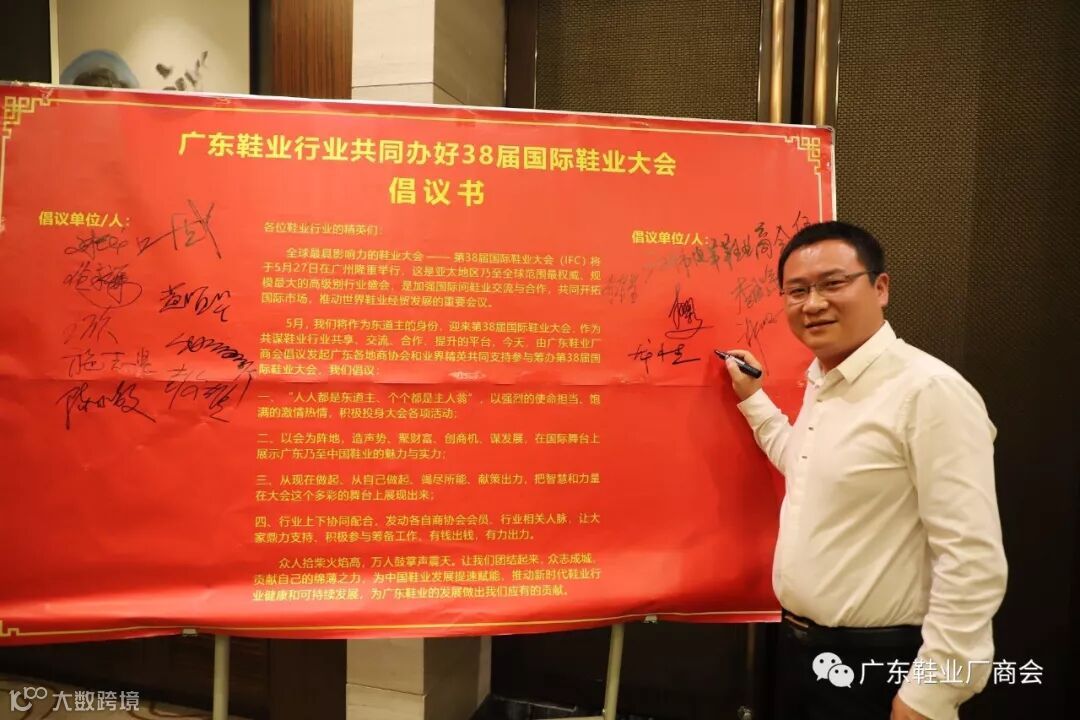 广东鞋业行业共同办好38届国际鞋业大会
倡议书
倡议单位/人：
陈小敏
各位鞋业行业的精英们：
全球最具影响力的鞋业大会 —— 第38届国际鞋业大会（IFC）将
于5月27日在广州隆重举行，这是亚太地区乃至全球范围最权威、规
模最大的高级别行业盛会，是加强国际间鞋业交流与合作，共同开拓
国际市场，推动世界鞋业经贸发展的重要会议。
5月，我们将作为东道主的身份，迎来第38届国际鞋业大会，作为
共谋鞋业行业共享、交流、合作、提升的平台，今天，由广东鞋业厂
商会倡议发起广东各地商协会和业界精英共同支持参与筹办第38届国
际鞋业大会，我们倡议：
一、“人人都是东道主、个个都是主人翁”，以强烈的使命担当、饱
满的激情热情，积极投身大会各项活动；
二、以会为阵地，造声势、聚财富、创商机、谋发展，在国际舞台上
展示广东乃至中国鞋业的魅力与实力；
三、从现在做起、从自己做起、竭尽所能、献策出力，把智慧和力量
在大会这个多彩的舞台上展现出来；
四、行业上下协同配合，发动各自商协会会员、行业相关人脉，让大
家鼎力支持、积极参与筹备工作，有钱出钱，有力出力。
众人拾柴火焰高，万人鼓掌声震天。让我们团结起来，众志成城，
贡献自己的绵薄之力，为中国鞋业发展提速赋能，推动新时代鞋业行
业健康和可持续发展，为广东鞋业的发展做出我们应有的贡献。
倡议单位/人：
鞋业商会
广东鞋业厂商会
大数跨境